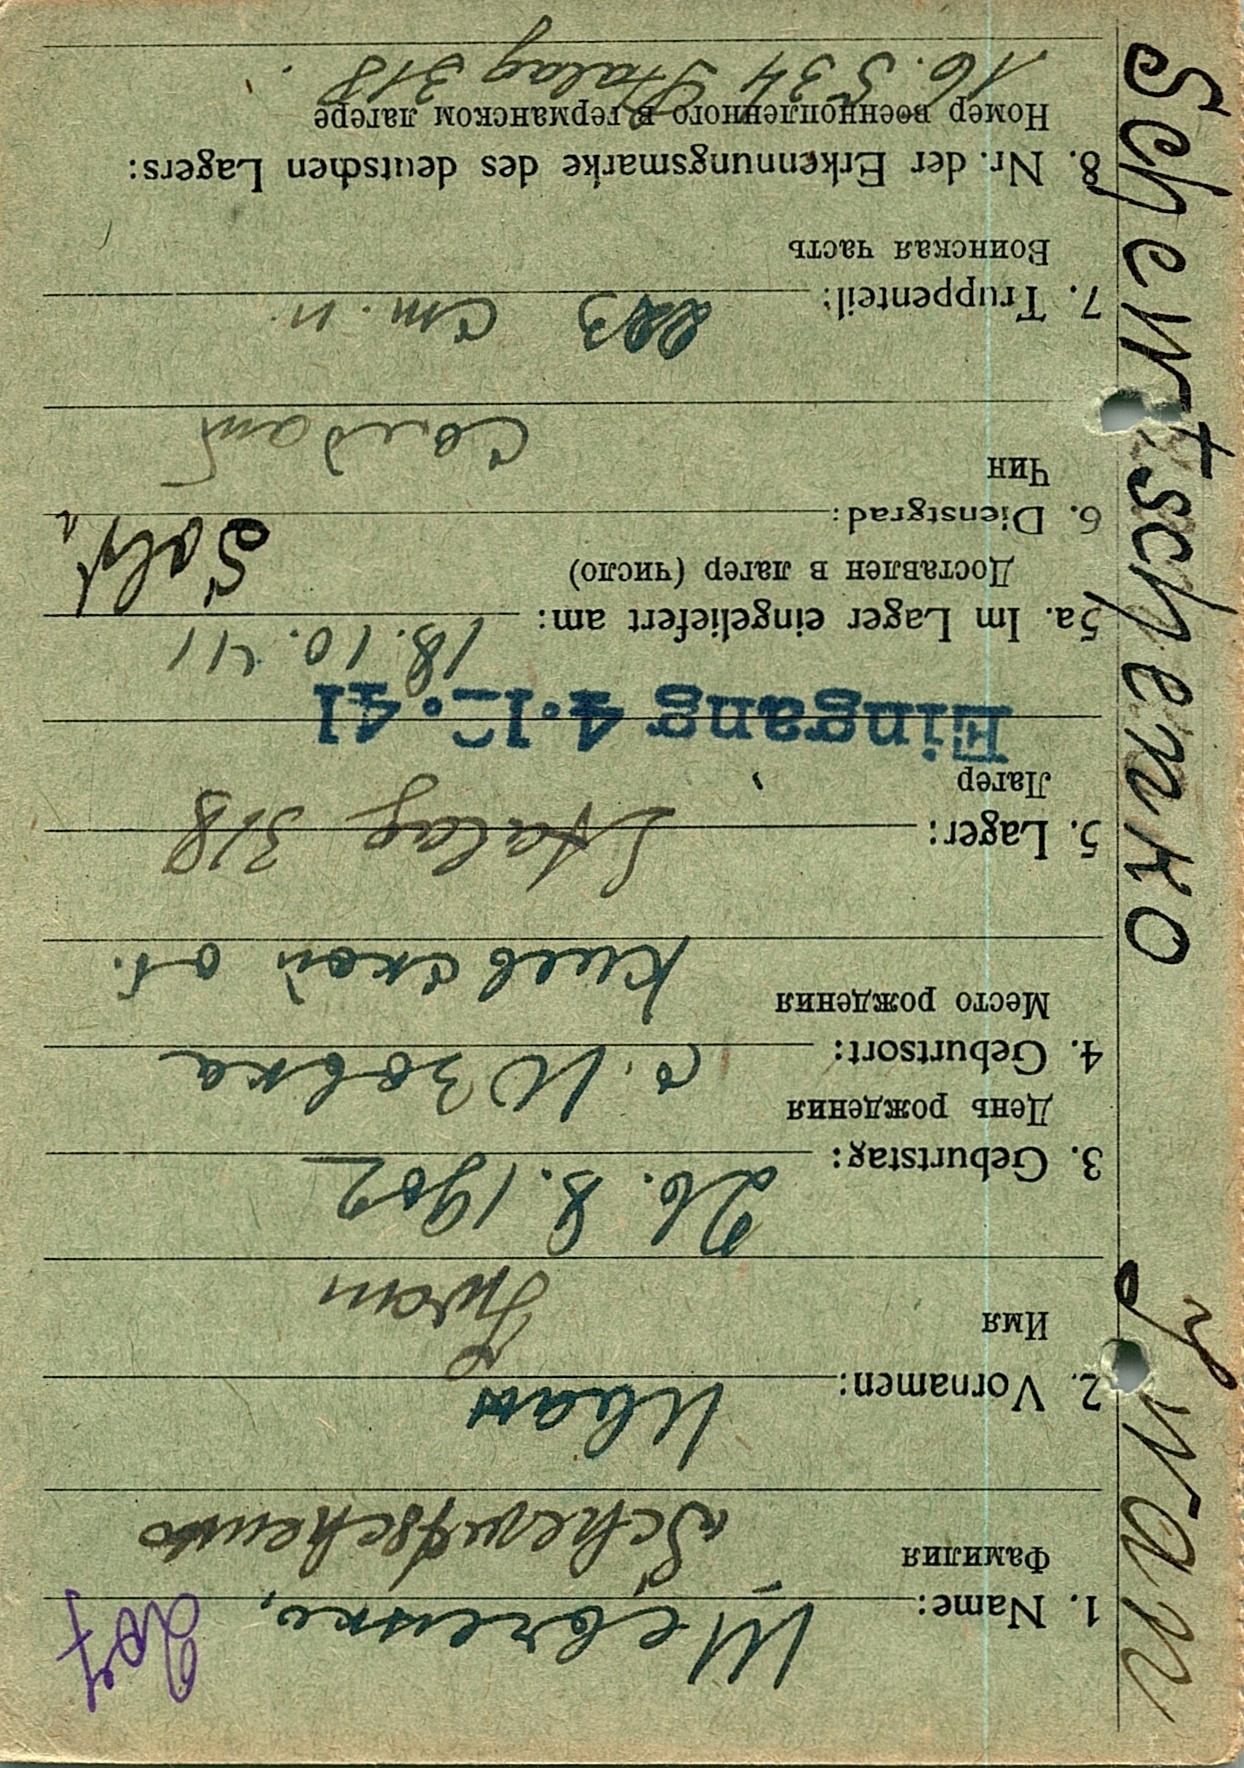 Schewtschenko Iwan
1. Name: Шевченко,
Фамилия Schewtschenko
2. Vornamen: Иван
Имя Iwan
3. Geburtstag: 26. 8. 1902
День рождения
4. Geburtsort: с. Юзовка
Место рождения
Киевской об.
5. Lager: Stalag 318
Лагер
Eingang 4·12·41
5a. Im Lager eingeliefert am: 18. 10. 41
Доставлен в лагер (число)
6. Dienstgrad: Sold
Чин
Солдат
7. Truppenteil: 223 ст. п.
Воинская часть
8. Nr. der Erkennungsmarke des deutschen Lagers:
Номер военнопленного в германском лагере
16. 534 Stalag 318.